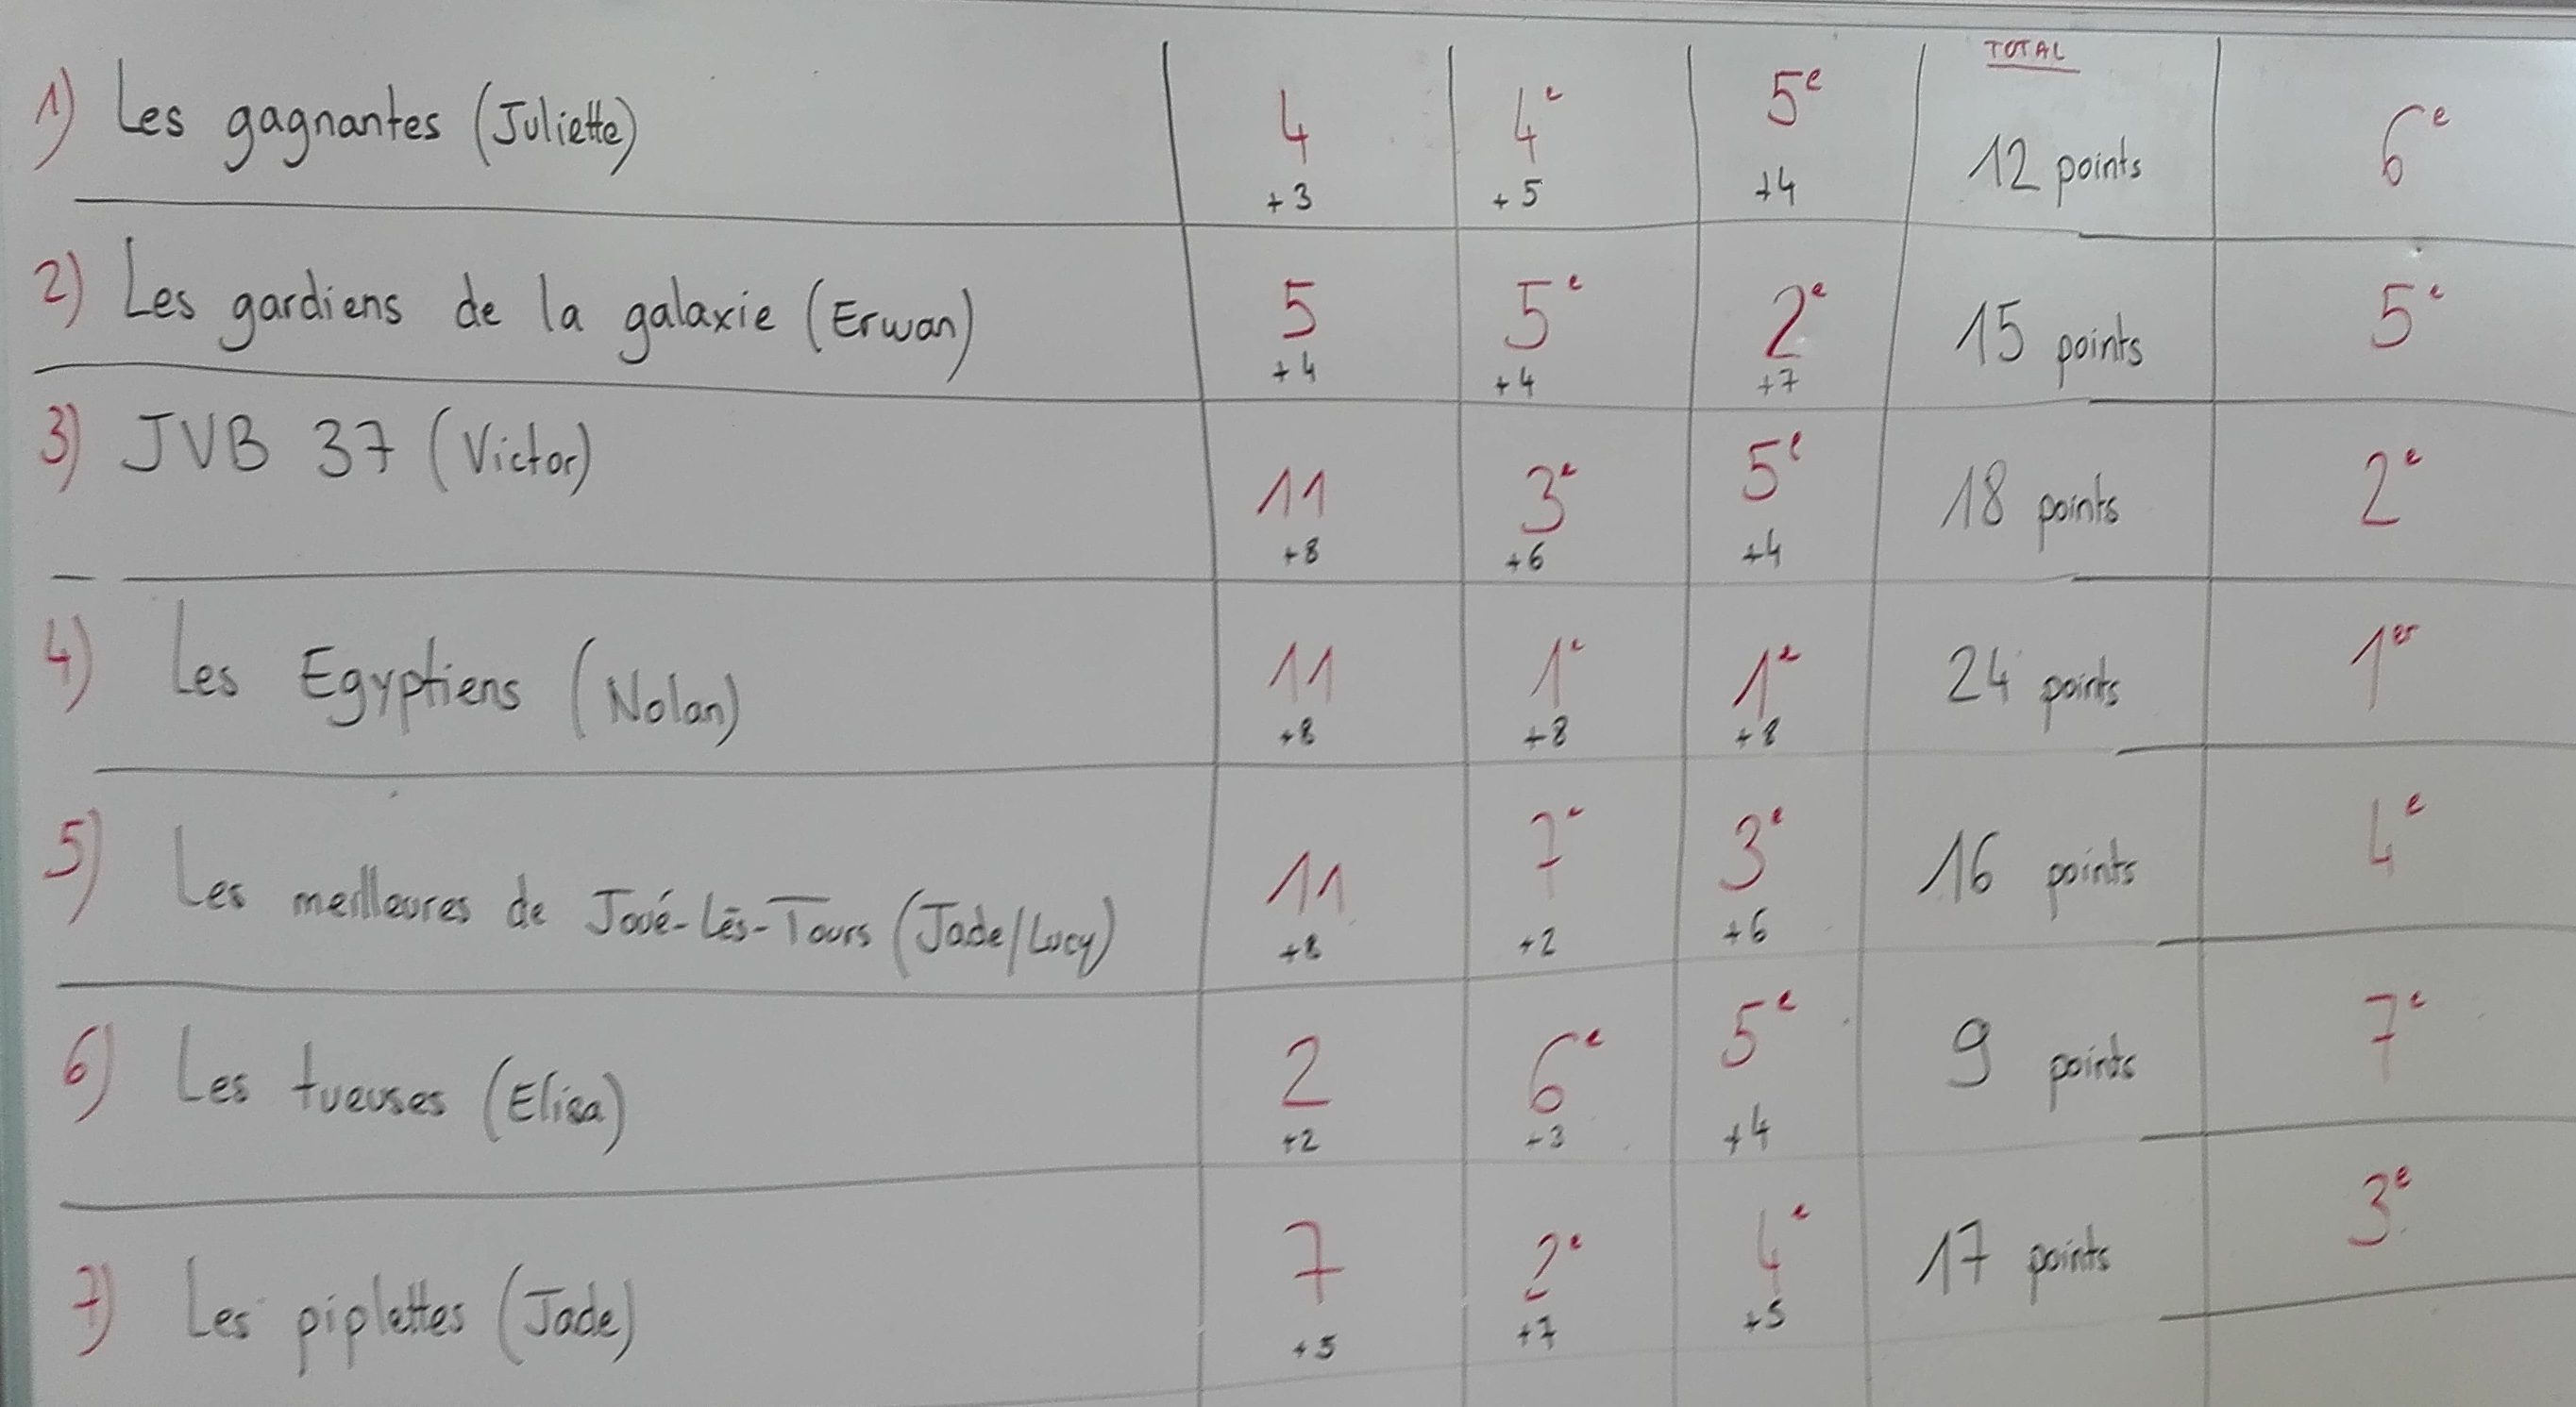 TOTAL
1) Les gagnantes (Juliette) 4 4e 5e 12 points 6e
+3 +5 +4
2) Les gardiens de la galaxie (Erwan) 5 5e 2e 15 points 5e
+4 +4 +7
3) JVB 37 (Victor) 11 3e 5e 18 points 2e
+8 +6 +4
4) Les Egyptiens (Nolan) 11 1e 1e 24 points 1er
+8 +8 +8
5) Les meilleures de Joué-Lès-Tours (Jade/Lucy) 11 7e 3e 16 points 4e
+8 +2 +6
6) Les tueuses (Elisa) 2 6e 5e 9 points 7e
+2 +3 +4
7) Les piplettes (Jade) 7 2e 4e 17 points 3e
+5 +7 +5